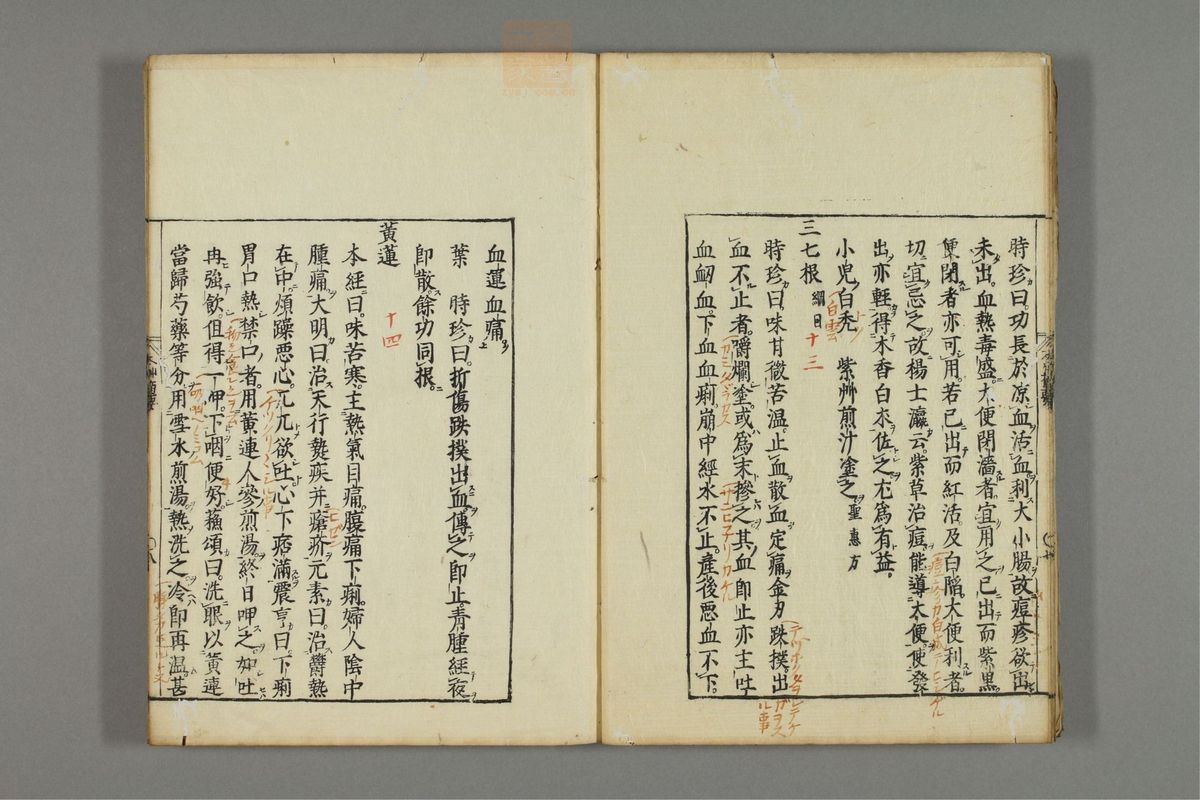 時珍曰功長於凉血活血利大小腸故痘疹欲出
未出血熱毒盛大便閉濇者宜用之已出而紫黒
便閉者亦可用若已出而紅活及白陷大便利者
切宜忌之故楊士瀛云紫草治痘能導大便使發
出亦軽得木香白朮佐之尤爲有益
小兒白禿 紫艸煎汁塗之聖惠方
三七根 綱目 十三
時珍曰味甘微苦温止血散血定痛金刃跌撲出
血不止者嚼爛塗或爲末摻之其血即止亦主吐
血衄血下血血痢崩中經水不止産後悪血不下
血運血痛
葉 時珍曰折傷跌撲出血傳之即止青腫經夜
即散餘功同根
黃蓮 十四
本經曰味苦寒主熱氣目痛腸痛下痢婦人陰中
腫痛大明曰治天行熱疾并瘡疥元素曰治欝熱
在中煩躁悪心兀兀欲吐心下痞滿震亨曰下痢
胃口熱禁口者用黃連人參煎湯終日呷之如吐
再強飲但得一呷下咽便好蘓頌曰洗眼以黃連
當歸芍藥等分用雪水煎湯熱洗之冷即再温甚